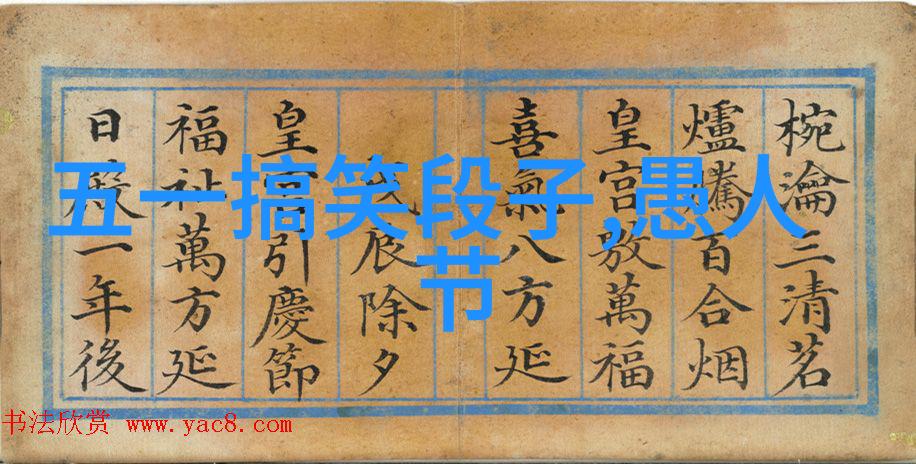 椀瀹三清茗
爐騰百合烟
皇宮敷萬福
喜氣八方延
戊辰除夕
皇宮引慶節
福祉萬方延
日殿一年後
五一搞笑段子,愚人
节
书法欣赏 www.yac8.com